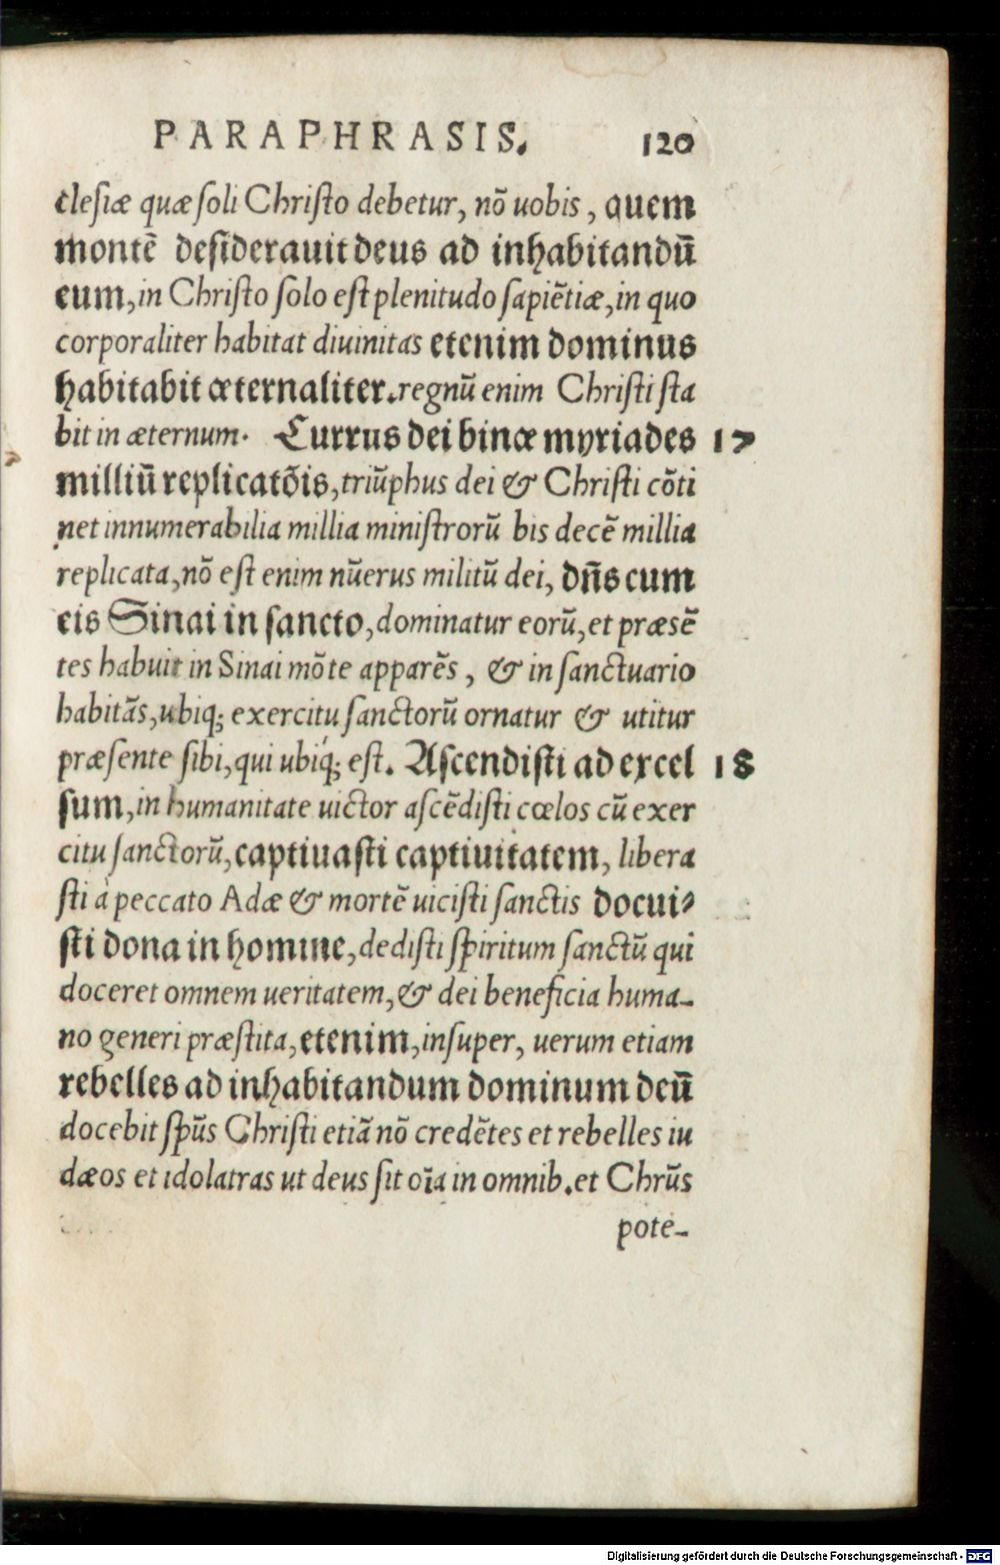 PARAPHRASIS. 120
clesiæ quæ soli Christo debetur, nõ uobis, quem
montẽ desiderauit deus ad inhabitandũ
eum, in Christo solo est plenitudo sapiẽtiæ, in quo
corporaliter habitat diuinitas etenim dominus
habitabit æternaliter. regnũ enim Christi sta
bit in æternum. Currus dei binæ myriades 17
milliũ replicatõis, triũphus dei & Christi cõti
net innumerabilia millia ministrorũ bis decẽ millia
replicata, nõ est enim nũerus militũ dei, dñs cum
eis Sinai in sancto, dominatur eorũ, et præsẽ
tes habuit in Sinai mõte apparẽs, & in sanctuario
habitãs, ubiq; exercitu sanctorũ ornatur & utitur
præsente sibi, qui ubiq́; est. Ascendisti ad excel 18
sum, in humanitate uictor ascẽdisti cœlos cũ exer
citu sanctorũ, captiuasti captiuitatem, libera
sti à peccato Adæ & mortẽ uicisti sanctis docui⸗
sti dona in homine, dedisti spiritum sanctũ qui
doceret omnem ueritatem, & dei beneficia huma-
no generi præstita, etenim, insuper, uerum etiam
rebelles ad inhabitandum dominum deũ
docebit spũs Christi etiã nõ credẽtes et rebelles iu
dæos et idolatras ut deus sit oĩa in omnib. et Chrũs
pote-
Digitalisierung gefördert durch die Deutsche Forschungsgemeinschaft - DFG